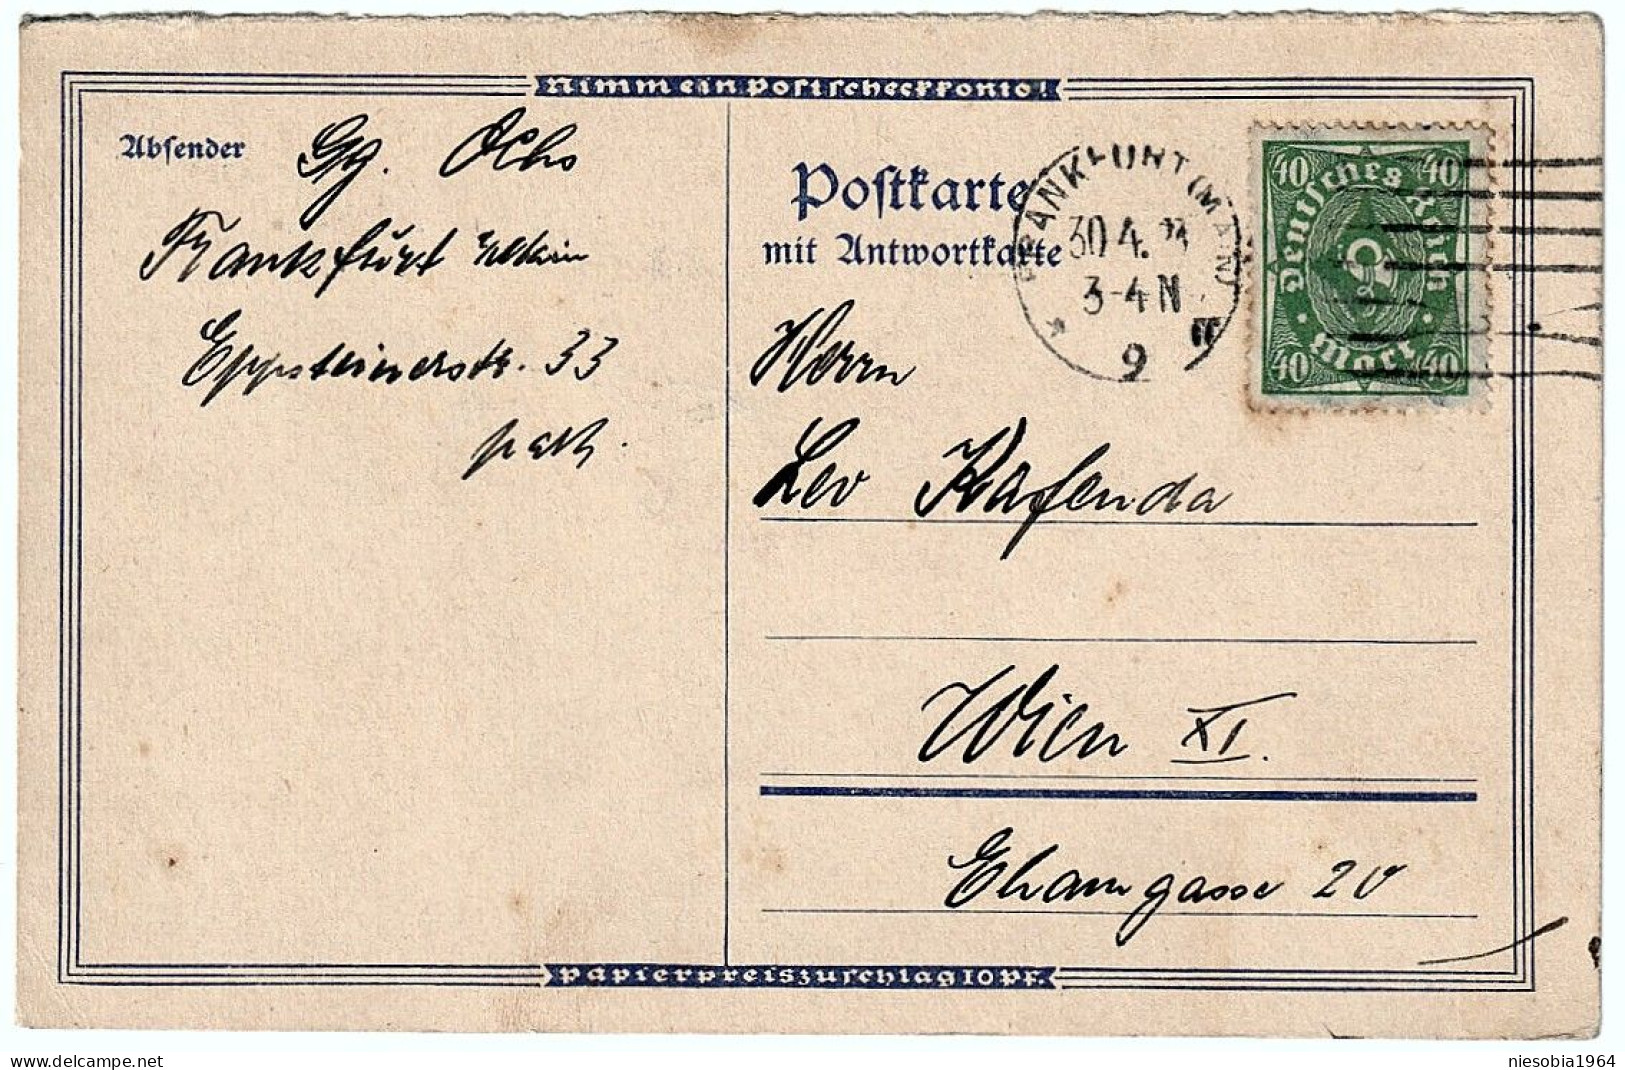 Nimm ein Postscheckkonto!
Absender Gg. Ochs
Frankfurt Main
Eppsteinerstr. 33
Postkarte
mit Antwortkarte
FRANKFURT (MAIN)
30.4.23
3-4 N
9
40 40
Deutsches Reich
Mark
40 40
Herrn
Leo Kafenda
Wien XI.
Ehamgasse 20
Papierpreiszuschlag 10 Pf.
niesobia1964